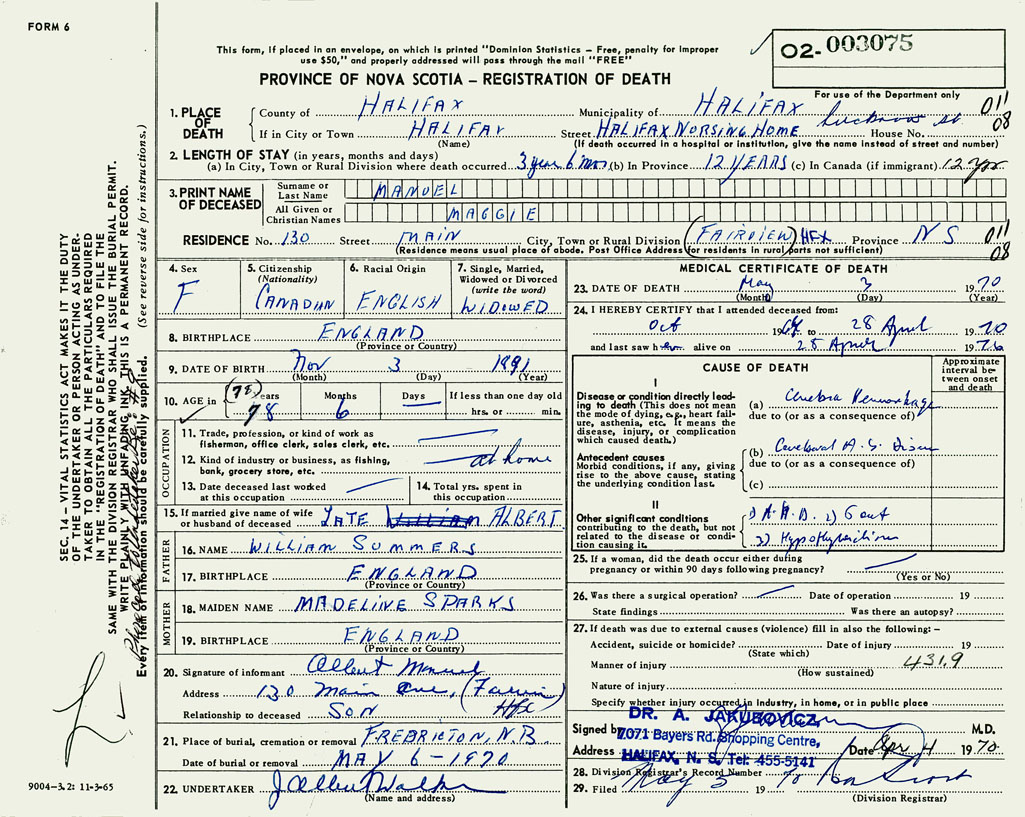 FORM 6
This form, if placed in an envelope, on which is printed "Dominion Statistics – Free, penalty for improper
use $50," and properly addressed will pass through the mail "FREE"
O2- 003075
PROVINCE OF NOVA SCOTIA – REGISTRATION OF DEATH
For use of the Department only
011
08
1. PLACE OF DEATH
County of HALIFAX Municipality of HALIFAX
If in City or Town HALIFAX Street HALIFAX NURSING HOME House No.
(Name) (If death occurred in a hospital or institution, give the name instead of street and number)
2. LENGTH OF STAY (in years, months and days)
(a) In City, Town or Rural Division where death occurred 3 year 6 mos (b) In Province 12 YEARS (c) In Canada (if immigrant) 12 yrs
3. PRINT NAME OF DECEASED
Surname or Last Name MANUEL
All Given or Christian Names MAGGIE
RESIDENCE No. 130 Street MAIN City, Town or Rural Division (FAIRVIEW) HFX Province N S
011
08
(Residence means usual place of abode. Post Office Address for residents in rural parts not sufficient)
4. Sex
F
5. Citizenship
(Nationality)
CANADIAN
6. Racial Origin
ENGLISH
7. Single, Married, Widowed or Divorced
(write the word)
WIDOWED
8. BIRTHPLACE ENGLAND
(Province or Country)
9. DATE OF BIRTH Nov 3 1891
(Month) (Day) (Year)
10. AGE in (78) Years Months Days If less than one day
78 6 hrs. or min.
OCCUPATION
11. Trade, profession, or kind of work as
fisherman, office clerk, sales clerk, etc.
12. Kind of industry or business, as fishing,
bank, grocery store, etc. at home
13. Date deceased last worked
at this occupation
14. Total yrs. spent in
this occupation
15. If married give name of wife
or husband of deceased LATE ALBERT
FATHER
16. NAME WILLIAM SUMMERS
17. BIRTHPLACE ENGLAND
(Province or Country)
MOTHER
18. MAIDEN NAME MADELINE SPARKS
19. BIRTHPLACE ENGLAND
(Province or Country)
20. Signature of informant Albert Manuel
Address 130 Main Ave,
Hfx
Relationship to deceased SON
21. Place of burial, cremation or removal FREDRICTON, N.B
Date of burial or removal MAY 6 - 1970
22. UNDERTAKER J Albert Walker
(Name and address)
MEDICAL CERTIFICATE OF DEATH
23. DATE OF DEATH May 3 1970
(Month) (Day) (Year)
24. I HEREBY CERTIFY that I attended deceased from:
Oct 19 to 28 April 1970
and last saw h alive on 28 April 1970
CAUSE OF DEATH
Approximate interval between onset and death
I
Disease or condition directly leading to death (This does not mean the mode of dying, e.g., heart failure, asthenia, etc. It means the disease, injury, or complication which caused death.)
(a)
due to (or as a consequence of)
Antecedent causes
Morbid conditions, if any, giving rise to the above cause, stating the underlying condition last.
(b) Cerebral A.S.
due to (or as a consequence of)
(c)
II
Other significant conditions
contributing to the death, but not related to the disease or condition causing it.
2) Gout
3)
25. If a woman, did the death occur either during
pregnancy or within 90 days following pregnancy?
(Yes or No)
26. Was there a surgical operation? Date of operation 19
State findings Was there an autopsy?
27. If death was due to external causes (violence) fill in also the following: –
Accident, suicide or homicide? Date of injury 19
(State which)
Manner of injury 431.9
(How sustained)
Nature of injury
Specify whether injury occurred in industry, in home, or in public place
Signed by DR. A. JAKUBOVICZ, M.D.
7071 Bayers Rd. Shopping Centre,
Address HALIFAX, N. S. Tel: 455-5141 Date 4 1970
28. Division Registrar's Record Number
29. Filed May 5 1970
(Division Registrar)
SEC. 14 – VITAL STATISTICS ACT MAKES IT THE DUTY
OF THE UNDERTAKER OR PERSON ACTING AS UNDER-
TAKER TO OBTAIN ALL THE PARTICULARS REQUIRED
IN THE "REGISTRATION OF DEATH" AND TO FILE THE
SAME WITH THE DIVISION REGISTRAR WHO SHALL ISSUE THE BURIAL PERMIT.
WRITE PLAINLY WITH UNFADING INK. THIS IS A PERMANENT RECORD.
Every item of information should be carefully supplied. (See reverse side for instructions.)
9004-3.2: 11-3-65